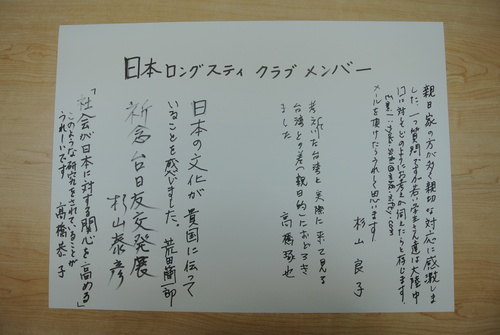 日本ロングスティ クラブ メンバー
親日家の方が多く親切な対応に感激しま
した。一つ質問ですが若い学生さん達は大陸中
口に対しどのようにお考えか伺えたらと存じます
メールを頂けたらうれしく思います
杉山良子
考えていた台湾と実際に来て見る
台湾との差へ親日的におどろき
ました
高橋琢也
日本の文化が貴国に伝って
いることを感じました、荒田蘭一郎
祈念台日友交発展
杉山泰彦
「社会が日本に対する関心を高める」
このような研究をされていることが
うれしいです 高橋恭子